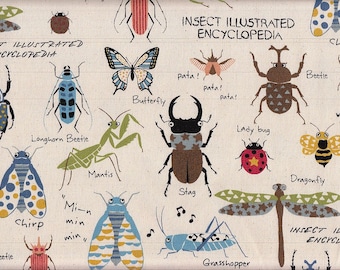 INSECT ILLUSTRATED
ENCYCLOPEDIA
INSECT ILLUSTRATED
ENCYCLOPEDIA
pata!
pata!
pata!
Beetle
Butterfly
Longhorn Beetle
Lady bug
Mantis
Stag
Dragonfly
Chirp
"Mi~n
min
min"
INSECT ILLUS
ENCYCLOPE
Grasshopper